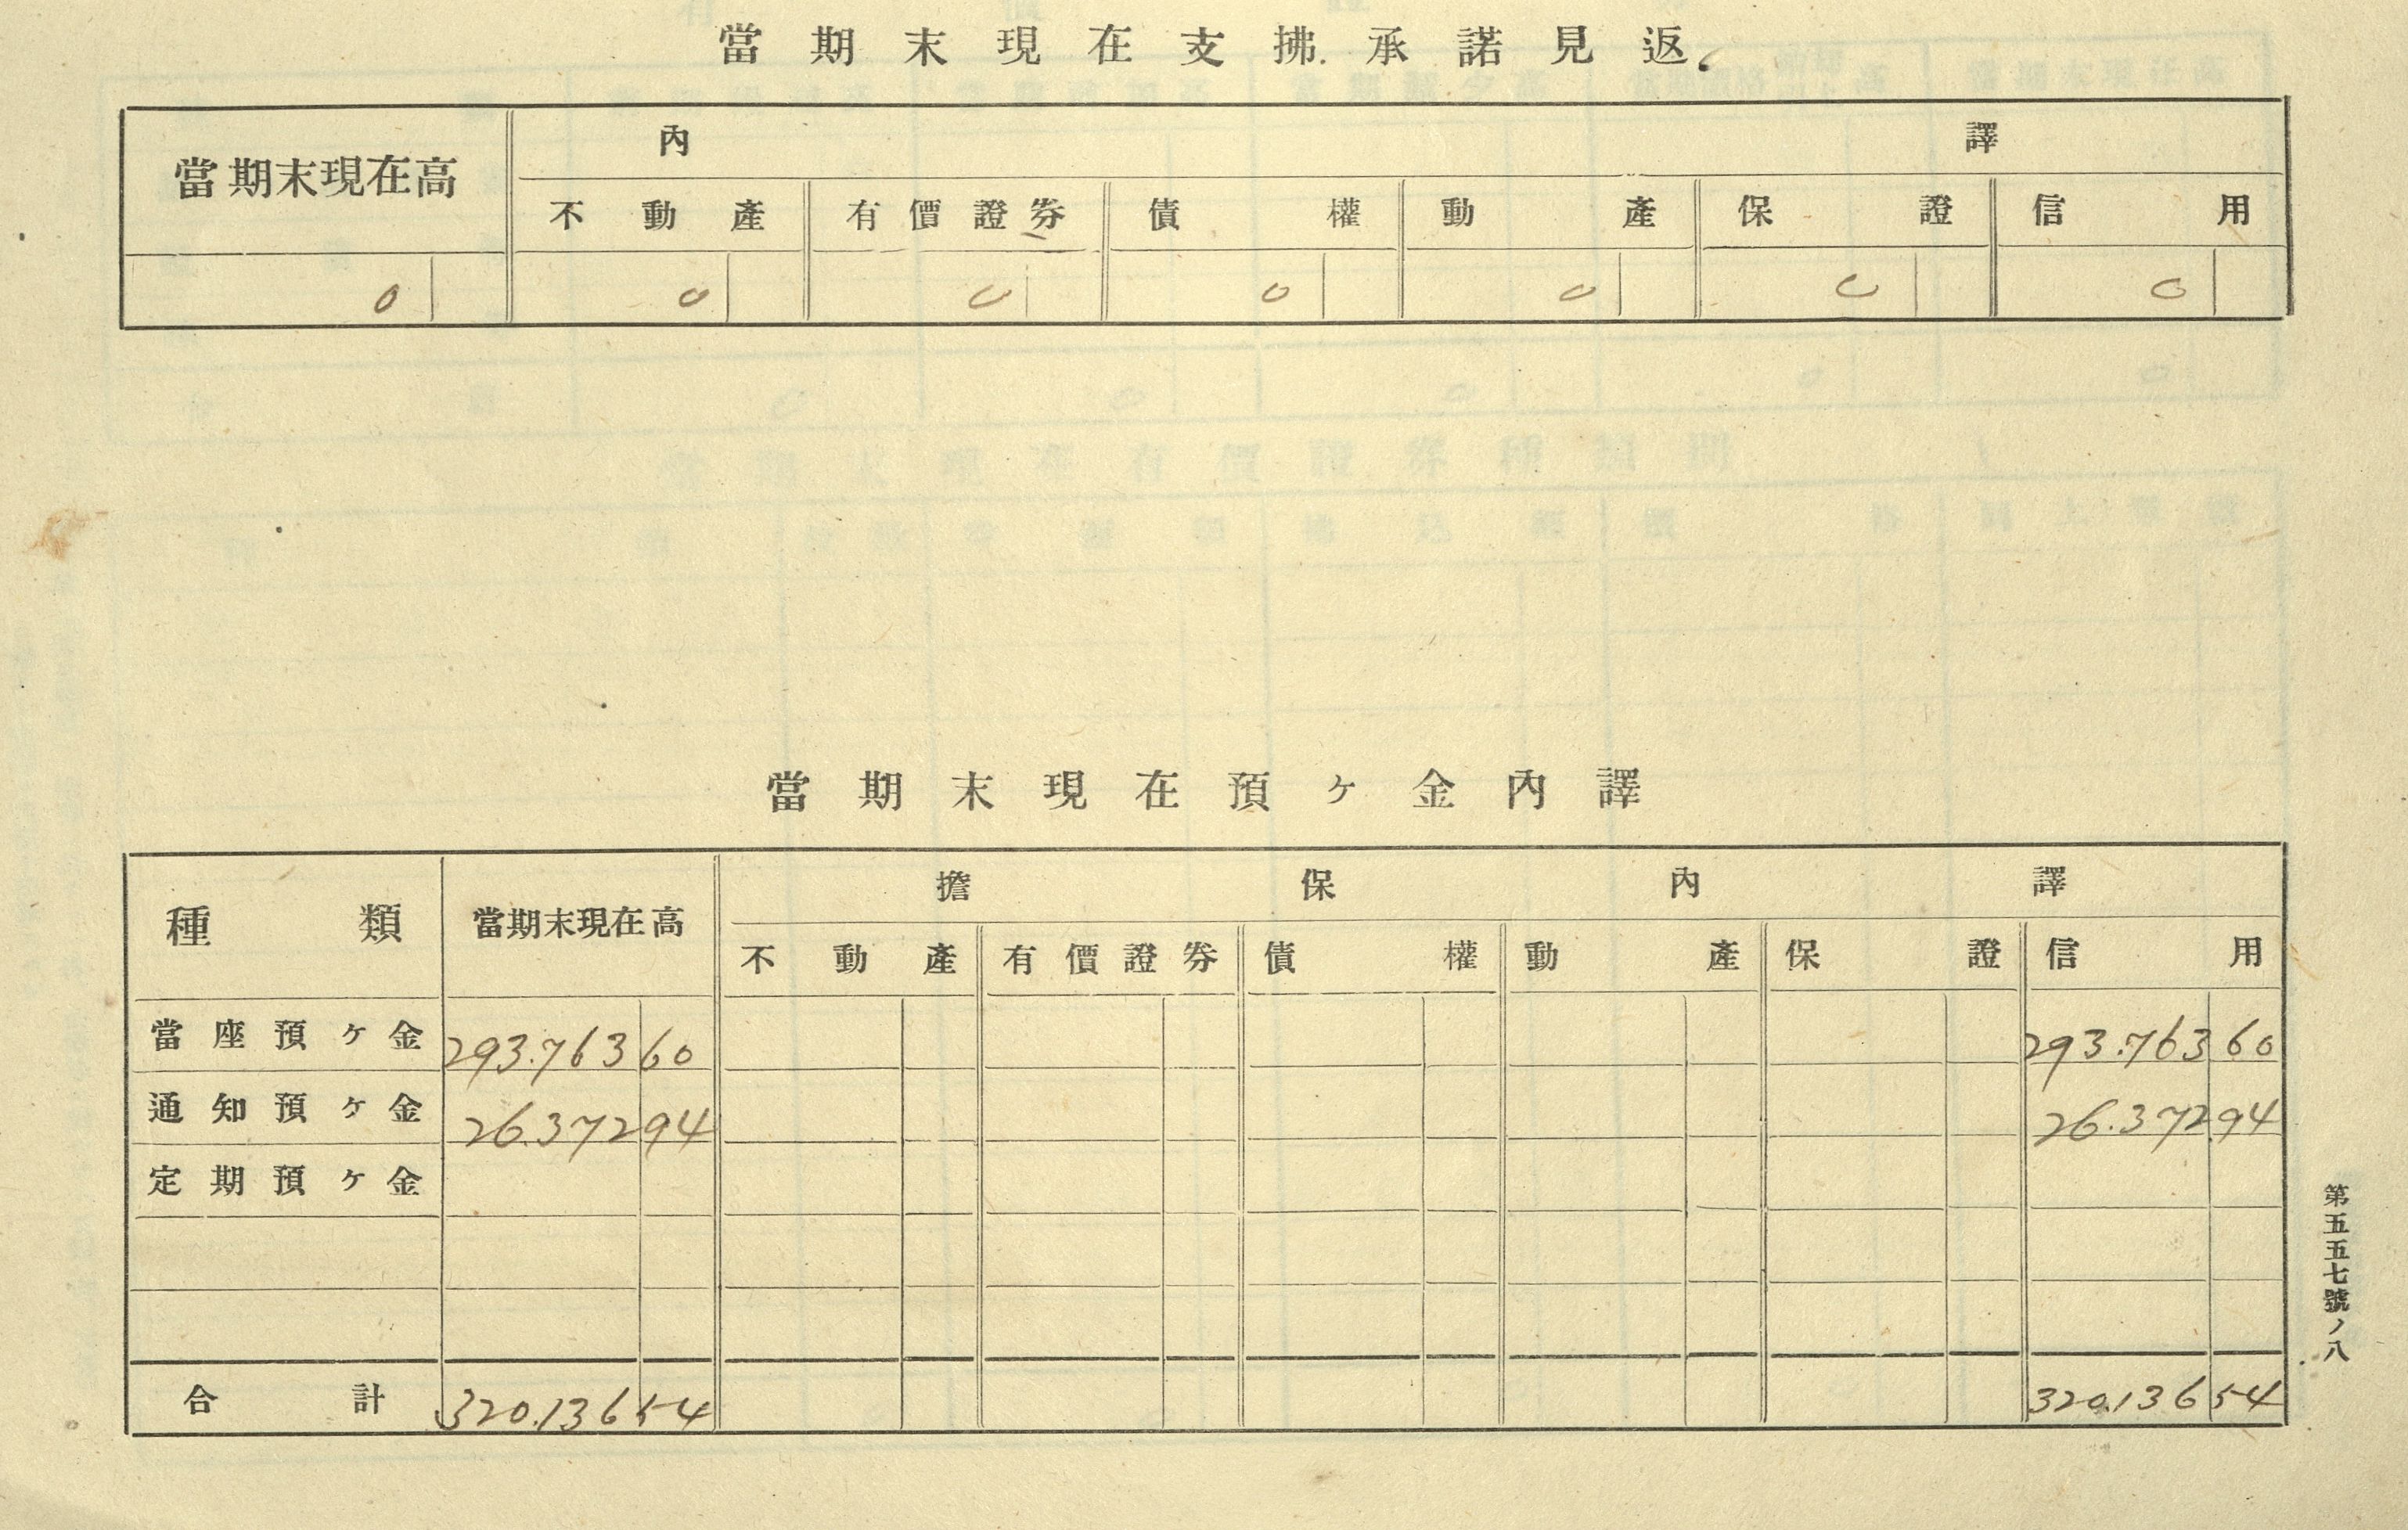 當期末現在支拂承諾見返
當期末現在高 內譯
不動產 有價證券 債權 動產 保證 信用
0 0 0 0 0 0 0
當期末現在預ヶ金內譯
種類 當期末現在高 擔保內譯
不動產 有價證券 債權 動產 保證 信用
當座預ヶ金 293.763 60 293.763 60
通知預ヶ金 26.372 94 26.372 94
定期預ヶ金
合計 320.136 54 320.136 54
第五五七號ノ八